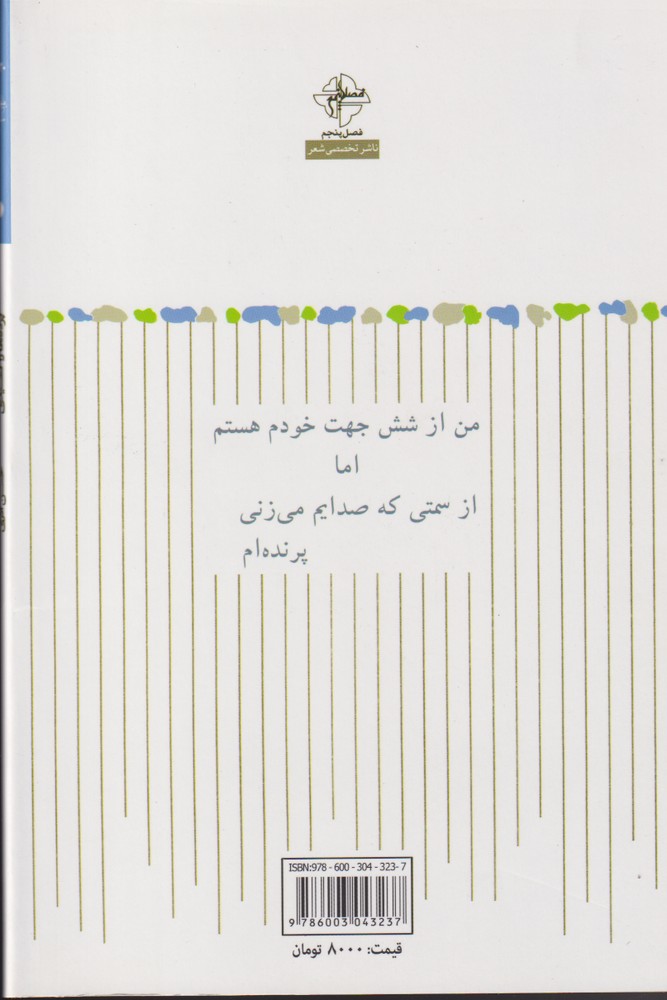 فصل پنجم
ناشر تخصصی شعر
من از شش جهت خودم هستم
اما
از سمتی که صدایم می‌زنی
پرنده‌ام
ISBN:978 - 600 - 304 - 323- 7
9 786003 043237
قیمت: ۸۰۰۰ تومان